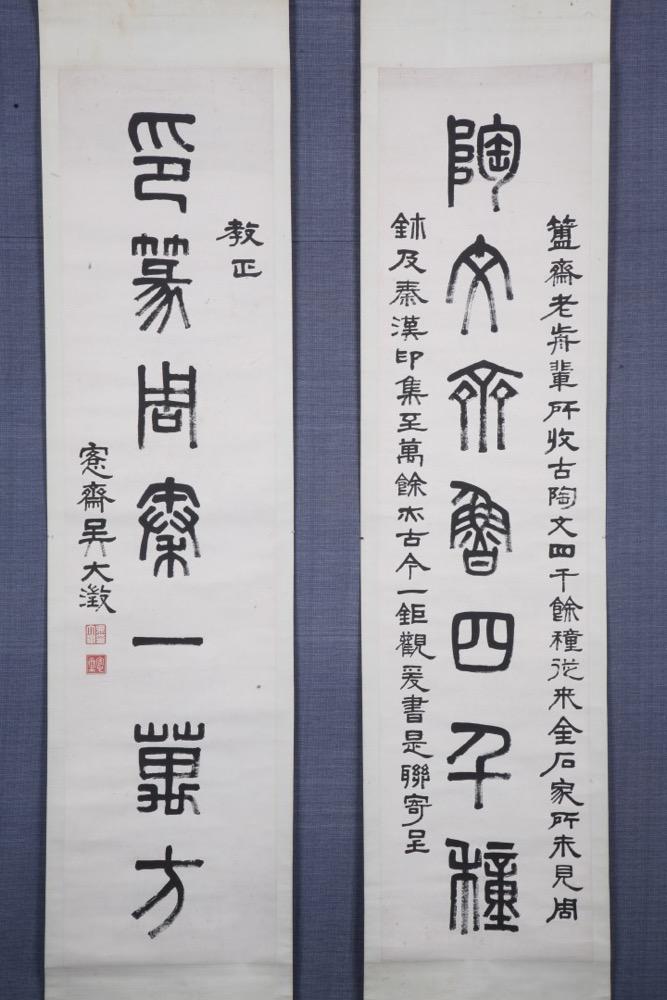 陶文齊魯四千種
簠齋老前輩所收古陶文四千餘種從來金石家所未見周
鉥及秦漢印集至萬餘亦古今一鉅觀爰書是聯寄呈
教正
印篆周秦一萬方
愙齋吳大澂